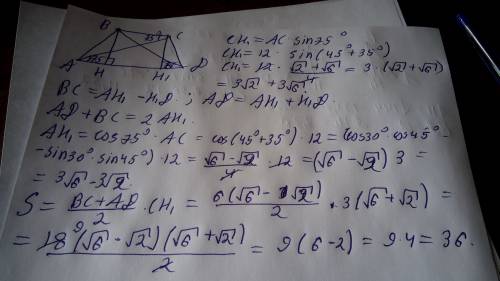 B
75° C
A 75° H H₁ D
CH₁ = AC sin75°
CH₁ = 12 · sin(45° + 35°)
CH₁ = 12 · (√2 + √6)/4 = 3 · (√2 + √6)
= 3√2 + 3√6
BC = AH₁ - H₁D ; AD = AH₁ + H₁D
AD + BC = 2 AH₁
AH₁ = cos75° · AC = cos(45° + 35°) · 12 = (cos30° · cos45° -
- sin30° · sin45°) · 12 = (√6 - √2)/4 · 12 = (√6 - √2) 3 =
= 3√6 - 3√2
S = (BC + AD)/2 · CH₁ = 6(√6 - √2)/2 · 3(√6 + √2) =
= 18 9 (√6 - √2)(√6 + √2)/2 = 9(6 - 2) = 9 · 4 = 36.